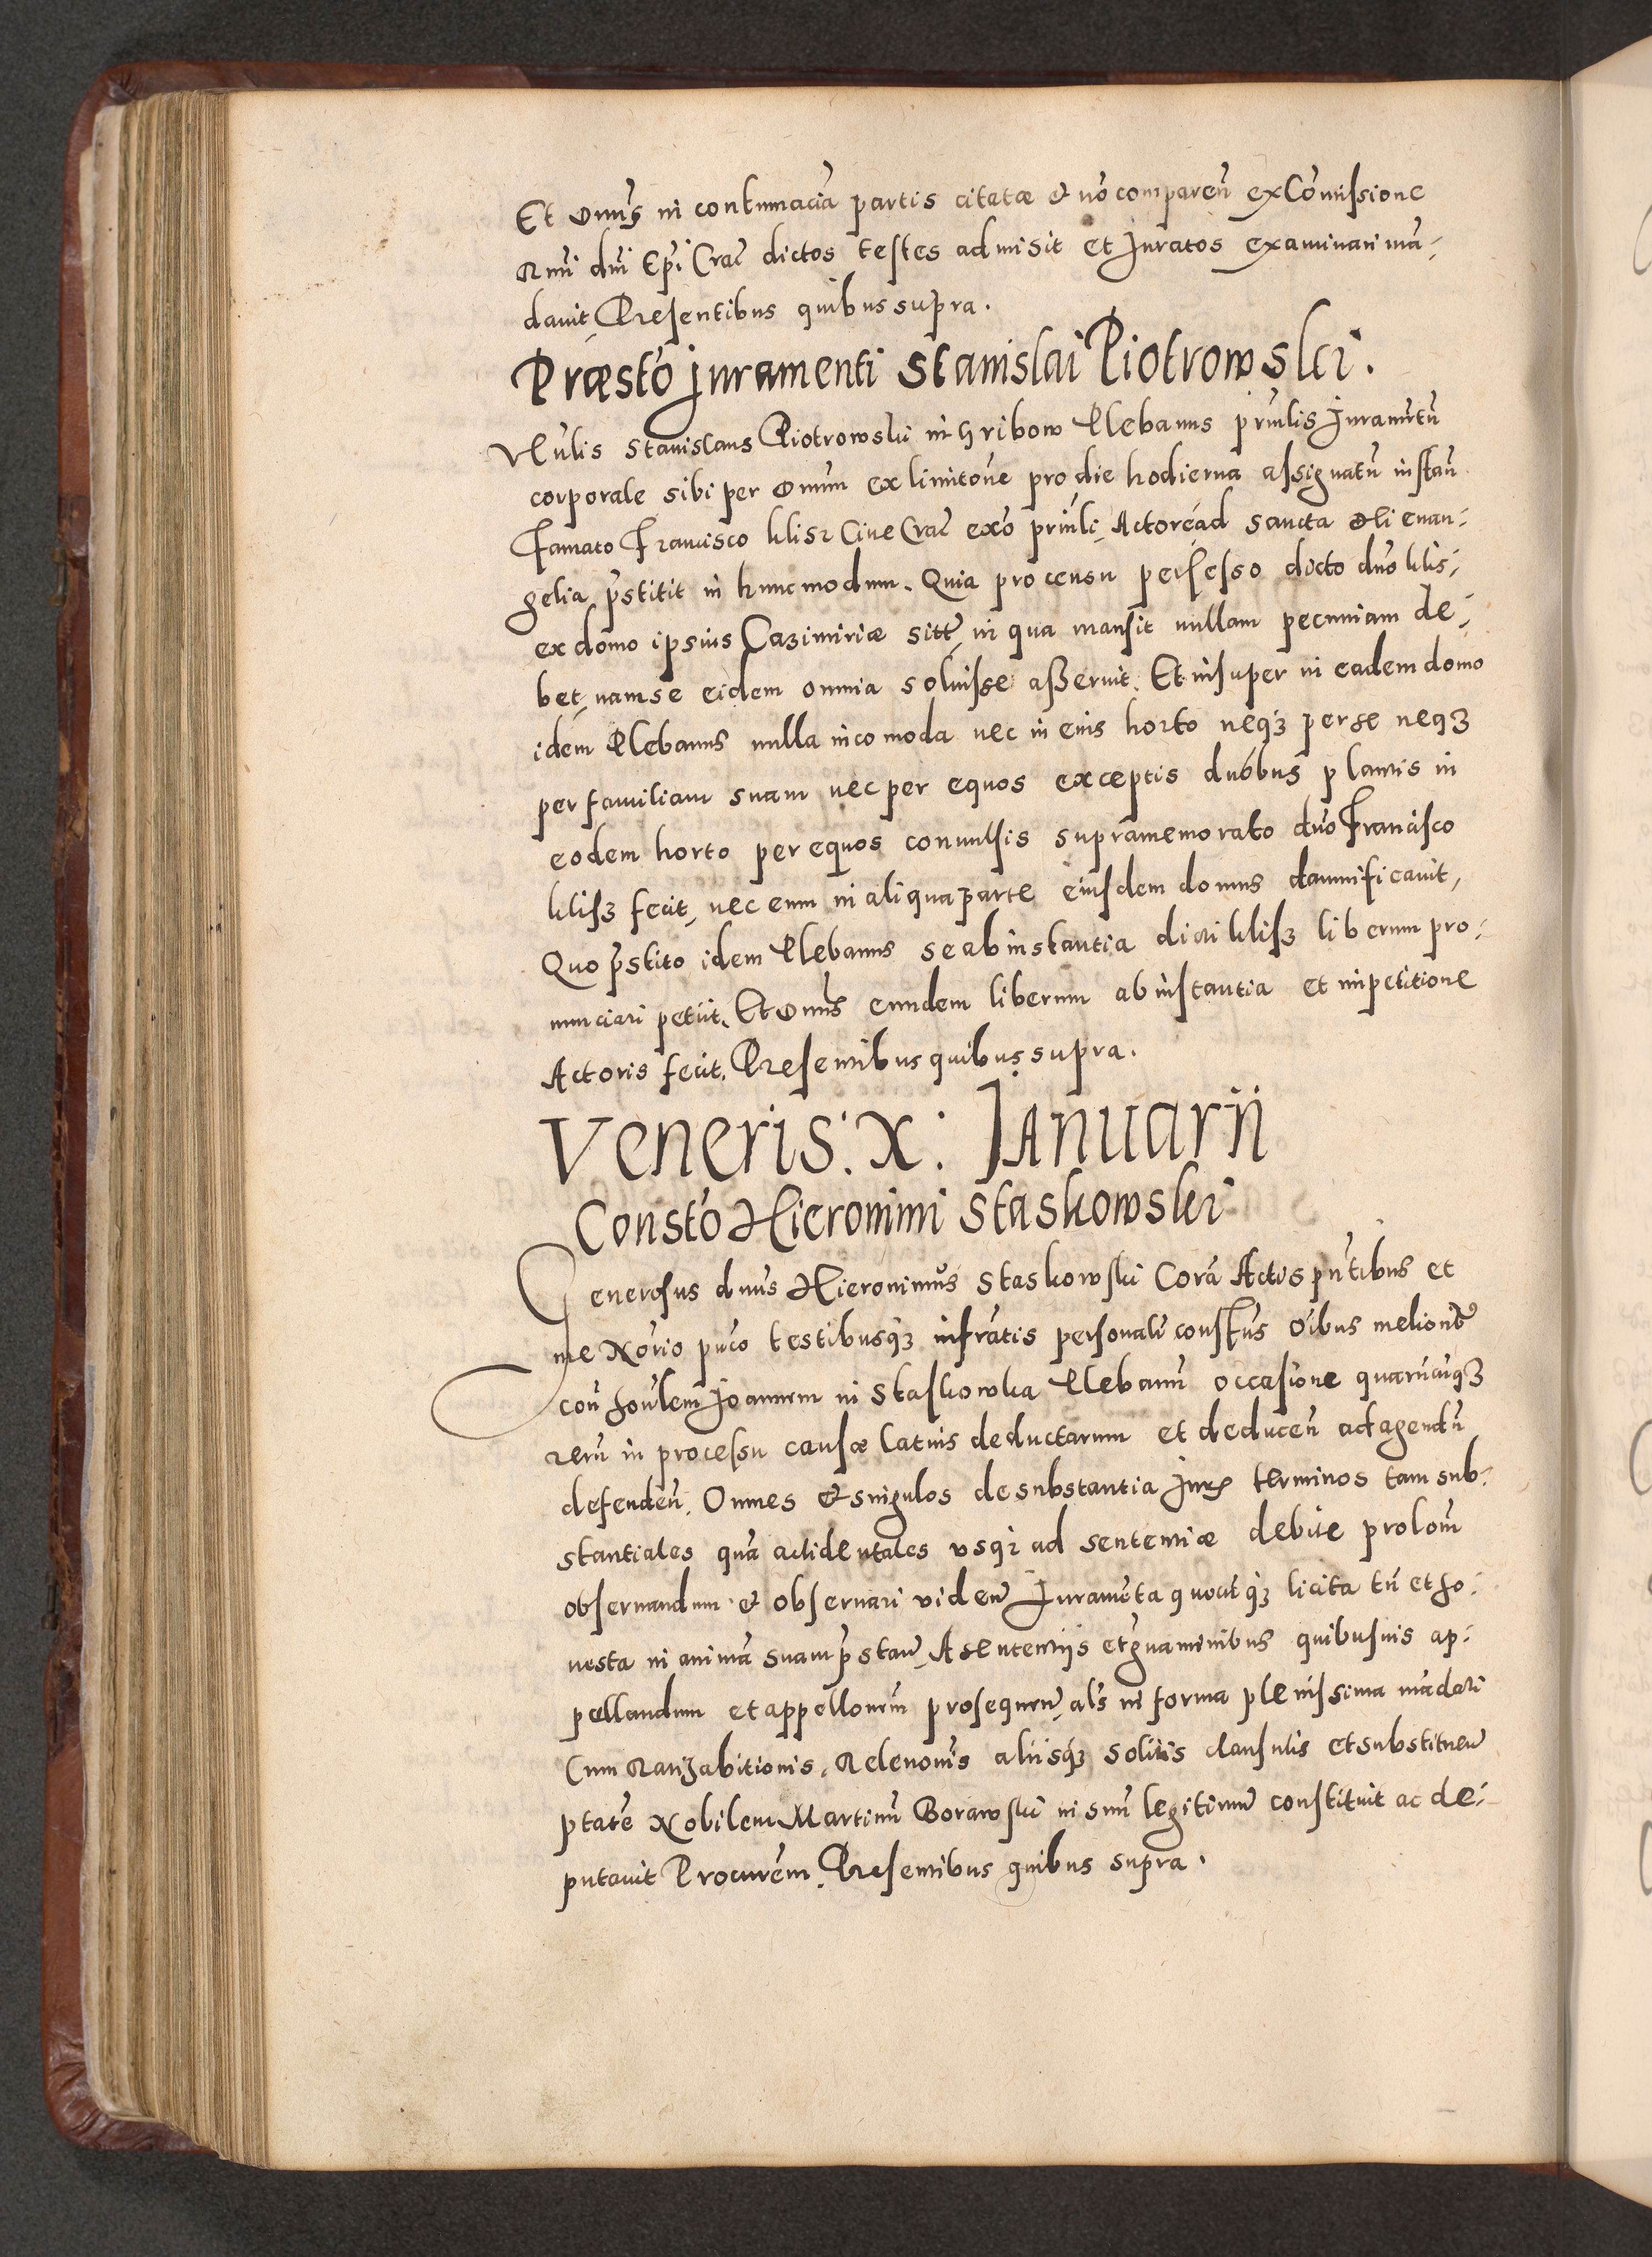 Et Dnus in contumaciā partis citatæ & nō comparen̄ ex Cōmissione
Rmi dni Epī Crac̄ dictos testes admisit et Juratos examinari mā-
davit, Presentibus quibus supra.
Præstō Juramenti Stanislai Piotrowski.
Vn̄lis Stanislaus Piotrowski in hribow Plebanus prin̄lis Juramn̄tū
corporale sibi per Dnum ex limitōne pro die hodierna assignatū instan̄
Famato Francisco klisz Cive Crac̄ exō prin̄li, Actore ad sancta Dei evan-
gelia pr̄stitit in hunc modum. Quia pro censu persesso dicto dn̄o klis-
ex domo ipsius Cazimiriæ sitt̄, in qua mansit nullam pecuniam de-
bet, nam se eidem omnia soluisse asseruit. Et insuper in eadem domo
idem Plebanus nulla incomoda nec in eius horto neqȝ per se neqȝ
per familiam suam nec per equos exceptis duobus plantis in
eodem horto per equos convulsis supramemorato dn̄o Francisco
klisz fecit, nec eum in aliqua parte eiusdem domus damnificavit,
Quo pr̄stito idem Plebanus se ab instantia dicti klisz liberum pro-
nunciari petiit. Et Dnus eundem liberum ab instantia et impetitione
Actoris fecit. Presentibus quibus supra.
Veneris: X: Januarii
Constō Hieronimi Staskowski
Generosus dnus Hieronimus Staskowski Corā Actis pn̄tibus et
me Nōrio pub̄co testibusqȝ infrātis personalr̄ constt̄us oībus meliorib
con hon̄lem Joannem in Staskowka Plebanū occasione quarūcūqȝ
rerū in processu causæ latius deductarum et deducen̄ ad agendū
defenden̄. Omnes & singulos de substantia Juris terminos tam sub-
stantiales quā accidentales usqȝ ad sententiæ debite prolom̄
observandum & observari viden̄ Juramēta quocūqȝ licita tn̄ et ho-
nesta in animā suam pr̄stan̄, A sententijs et gravaminibus quibusvis ap-
pellandum et appellonem̄ prosequen̄, als in forma plenissima mādati
Cum ratihabitionis, Relevonis aliisqȝ solitis clausulis et substituen̄
ptatē Nobilem Martinū Borawski in suū legitimū constituit ac de-
putavit Procurem̄. Presentibus quibus supra.